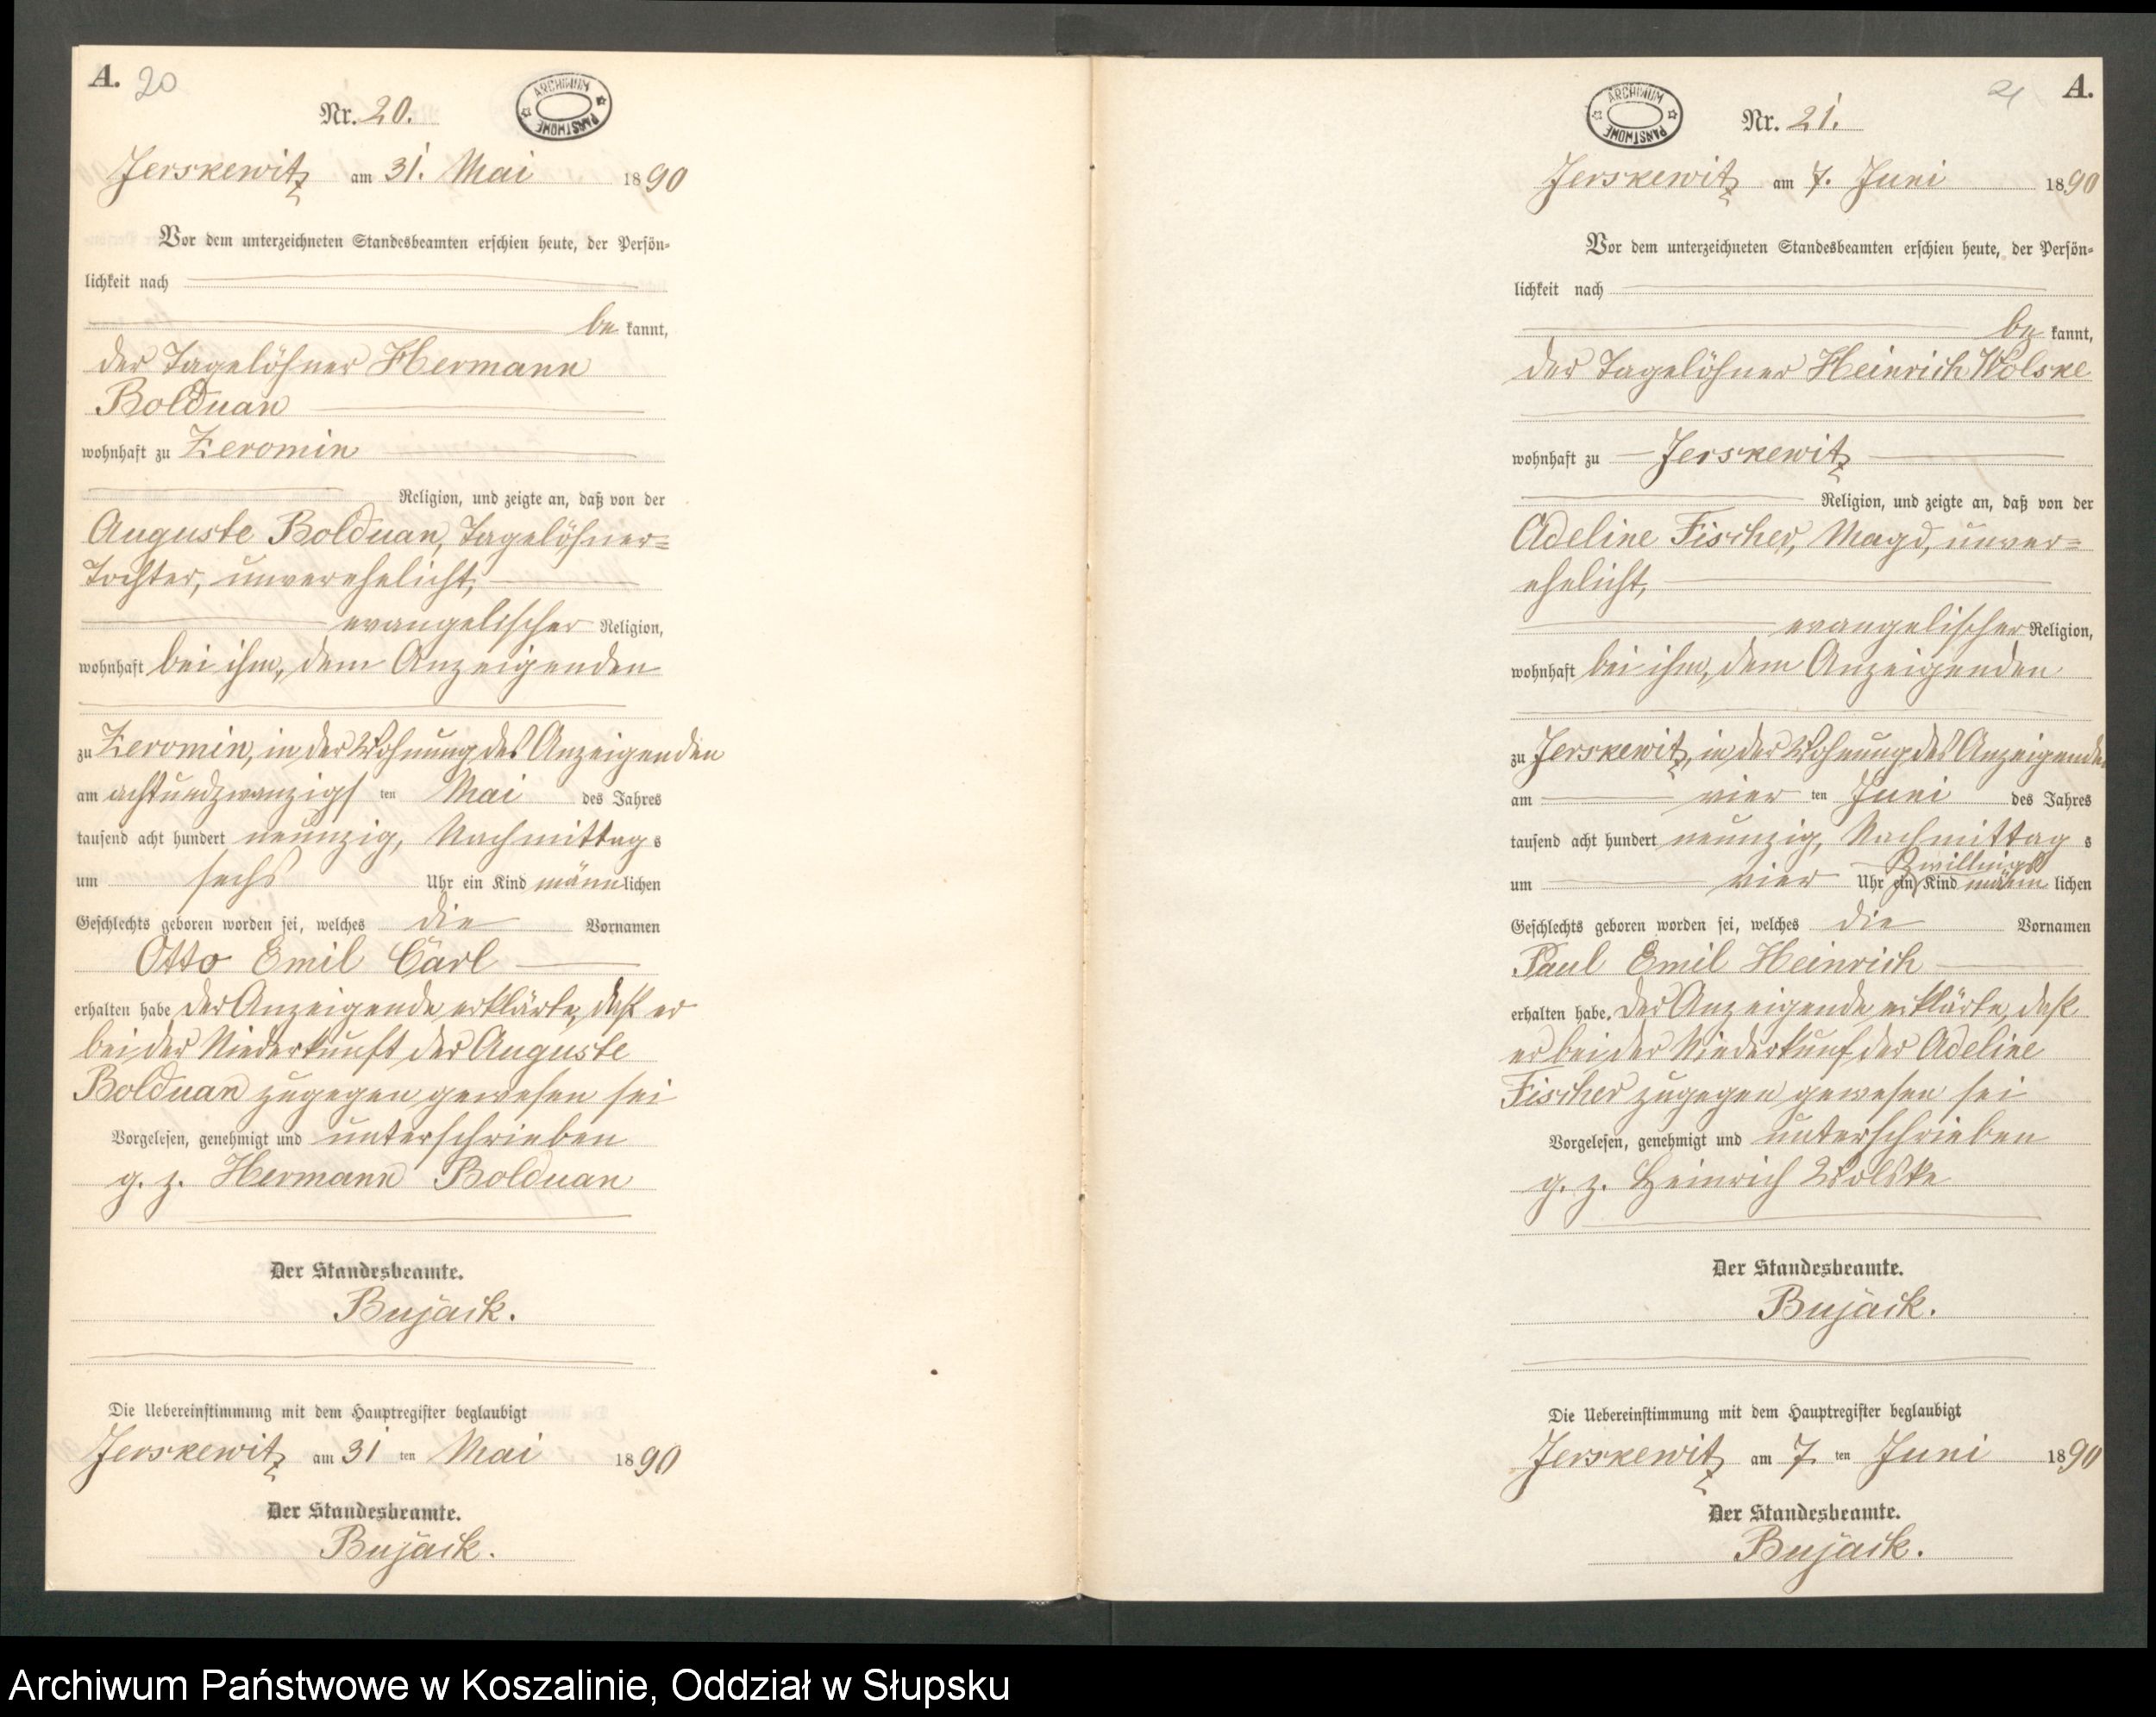 A. 20
Nr. 20.
ARCHIWUM PAŃSTWOWE
Jerskewitz am 31. Mai 1890
Vor dem unterzeichneten Standesbeamten erschien heute, der Persön-
lichkeit nach
be kannt,
der Tagelöhner Hermann
Bolduan
wohnhaft zu Zeromin
Religion, und zeigte an, daß von der
Auguste Bolduan, Tagelöhner=
Tochter, unverehelicht,
evangelischer Religion,
wohnhaft bei ihm, dem Anzeigenden
zu Zeromin, in der Wohnung des Anzeigenden
am achtundzwanzigs ten Mai des Jahres
tausend acht hundert neunzig, Nachmittag s
um sechs Uhr ein Kind männlichen
Geschlechts geboren worden sei, welches die Vornamen
Otto Emil Carl
erhalten habe Der Anzeigende erklärte, daß er
bei der Niederkunft der Auguste
Bolduan zugegen gewesen sei
Vorgelesen, genehmigt und unterschrieben
g. z. Hermann Bolduan
Der Standesbeamte.
Bujack.
Die Uebereinstimmung mit dem Hauptregister beglaubigt
Jerskewitz am 31 ten Mai 1890
Der Standesbeamte.
Bujack.
21 A.
Nr. 21.
ARCHIWUM PAŃSTWOWE
Jerskewitz am 7. Juni 1890
Vor dem unterzeichneten Standesbeamten erschien heute, der Persön-
lichkeit nach
be kannt,
der Tagelöhner Heinrich Wolske
wohnhaft zu Jerskewitz
Religion, und zeigte an, daß von der
Adeline Fischer, Magd, unver=
ehelicht,
evangelischer Religion,
wohnhaft bei ihm, dem Anzeigenden
zu Jerskewitz, in der Wohnung des Anzeigenden
am vier ten Juni des Jahres
tausend acht hundert neunzig, Nachmittag s
Zwillings
um vier Uhr ein Kind männ lichen
Geschlechts geboren worden sei, welches die Vornamen
Paul Emil Heinrich
erhalten habe. Der Anzeigende erklärte, daß
er bei der Niederkunf der Adeline
Fischer zugegen gewesen sei
Vorgelesen, genehmigt und unterschrieben
g. z. Heinrich Wolske
Der Standesbeamte.
Bujack.
Die Uebereinstimmung mit dem Hauptregister beglaubigt
Jerskewitz am 7. ten Juni 1890
Der Standesbeamte.
Bujack.
Archiwum Państwowe w Koszalinie, Oddział w Słupsku